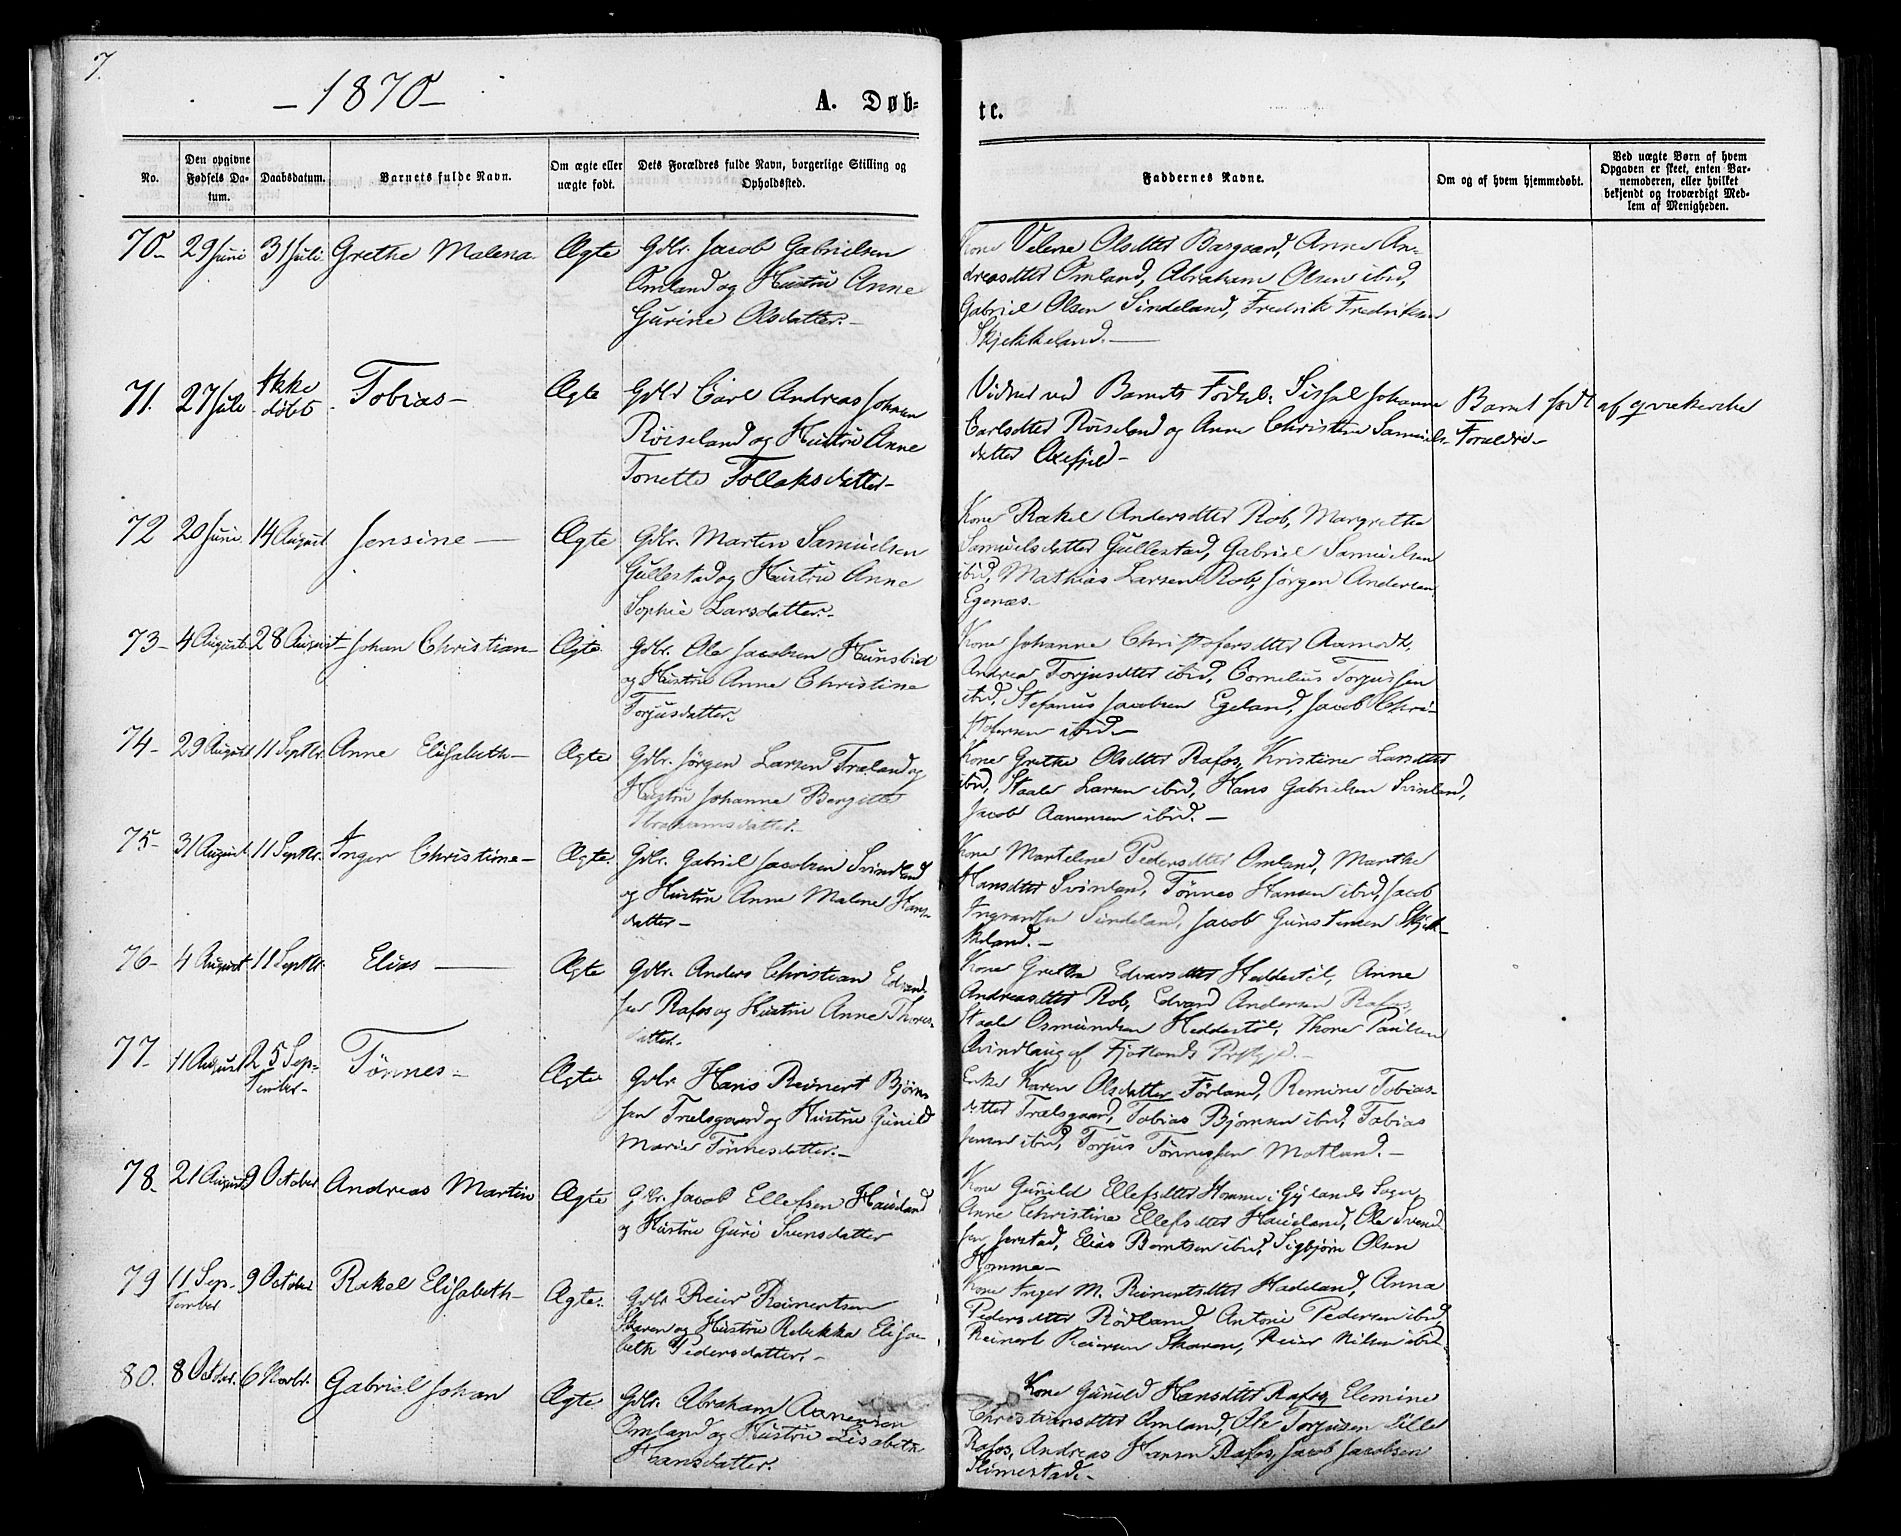 7.
- 1870 -
A. Døb-
te.
No.
Den opgivne Fødsels Da-
tum.
Daabsdatum.
Barnets fulde Navn.
Om ægte eller
uægte født.
Dets Forældres fulde Navn, borgerlige Stilling og
Opholdssted.
Faddernes Navne.
Om og af hvem hjemmedøbt.
Ved uægte Børn af hvem
Opgaven er skeet, enten Bar-
nemoderen, eller hvilket
bekjendt og troværdigt Med-
lem af Menigheden.
70- 29 Juni 31 Juli Grethe Malena Ægte Gdbr. Jacob Gabrielsen
Omland og Hustru Anne
Gurine Olsdatter.-
Kone Velene Olsdtter Bargaard, Anne An-
dreasdtter Omland, Abraham Olsen ibid,
Gabriel Olsen Sindeland, Fredrik Fredriksen
Skjekkeland.-
71. 27 Juli Ikke
døbt Tobias- Ægte Gdbr Carl Andreas Johnsen
Röiseland og Hustru Anne
Tonette Tollaksdatter-
Vidner ved Barnets Födsel: Sissel Johanne
Carlsdtter Röiseland og Anne Christine Samuels-
datter Oxefjeld-
Barnet født af qvækerske
Forældre-
72 20 Juni 14 August Jensine- Ægte Gdbr. Martin Samuelsen
Gullestad og Hustru Anne
Sophie Larsdatter.-
Kone Rakel Andersdtter Rob, Margrethe
Samuelsdatter Gullestad, Gabriel Samuelsen
ibid, Mathias Larsen Rob, Jørgen Andersen
Egenæs.
73- 4 August 28 August Johan Christian- Ægte. Gdbr. Ole Jacobsen Hunsbed
og Hustru Anne Christine
Torjusdatter.
Kone Johanne Christofersdtter Aamodt,
Andrea Torjusdtter ibid, Cornelius Torjussen
ibid, Stefanus Jacobsen Egeland, Jacob Chri-
stofersen ibid-
74- 29 August 11 Septbr. Anne Elisabeth- Ægte Gdbr. Jörgen Larsen Træland og
Hustru Johanne Bergitte
Abrahamsdatter.-
Kone Grethe Olsdtter Rafos, Kristine Larsdtter
ibid, Staale Larsen ibid, Hans Gabrielsen Svinland,
Jacob Aanensen ibid.-
75- 31 August 11 Septbr. Inger Christine- Ægte. Gdbr. Gabriel Jacobsen Svindland
og Hustru Anne Malene Hans-
datter-
Kone Martelene Pedersdtter Omland, Marthe
Hansdtter Svinland, Tönnes Hansen ibid, Jacob
Ingvardsen Sindeland, Jacob Gunstensen Skjek-
keland.-
76- 4 August 11 Septbr. Elias- Ægte Gdbr. Anders Christian Edvard-
sen Rafos og Hustru Anne Thores-
datter.
Kone Grethe Edvarsdtter Heddestöl, Anne
Andreasdtter Rob, Edvard Andersen Rafos,
Staale Osmundsen Heddestöl, Thore Paulsen
Qvindlaug af Fjotlands Prstgjd.-
77- 11 August 25 Sep-
tember- Tönnes- Ægte Gdbr Hans Reinert Björn-
sen Trælsgaard og Hustru Gunild
Marie Tönnesdatter.-
Enke Karen Olsdatter Förland, Remine Tobias-
datter Trælsgaard, Tobias Bjørnsen ibid, Tobias
Jensen ibid, Torjus Tönnessen Motland.-
78- 21 August 9 October Andreas Martin Ægte Gdbr Jacob Ellefsen Haugland
og Hustru Guri Svensdatter
Kone Gunild Ellefsdtter Homme i Gylands Sogn,
Anne Christine Ellefsdtter Haugland, Ole Svend-
sen Jerstad, Elias Berntsen ibid, Sigbjørn Olsen
Homme-
79 11 Sep-
tember 9 October Rakel Elisabeth- Ægte. Gdbr Reier Reinertsen
Skaren og Hustru Rebekka Elisa-
beth Pedersdatter.-
Kone Inger M. Reinertsdtter Hadeland, Anna
Pedersdtter Rödland, Antoni Pedersen ibid,
Reinert Reiersen Skaren, Reier Nilsen ibid-
80. 8 October. 6 Novbr. Gabriel Johan Ægte Gdbr. Abraham Aanensen
Omland og Hustru Lisabeth
Hansdatter.
Kone Gunild Hansdtter Rafos, Elemine
Christiansdtter Omland, Ole Torjusen Lille
Rafos, Andreas Hansen Rafos, Jacob Jacobsen
Slimestad.-